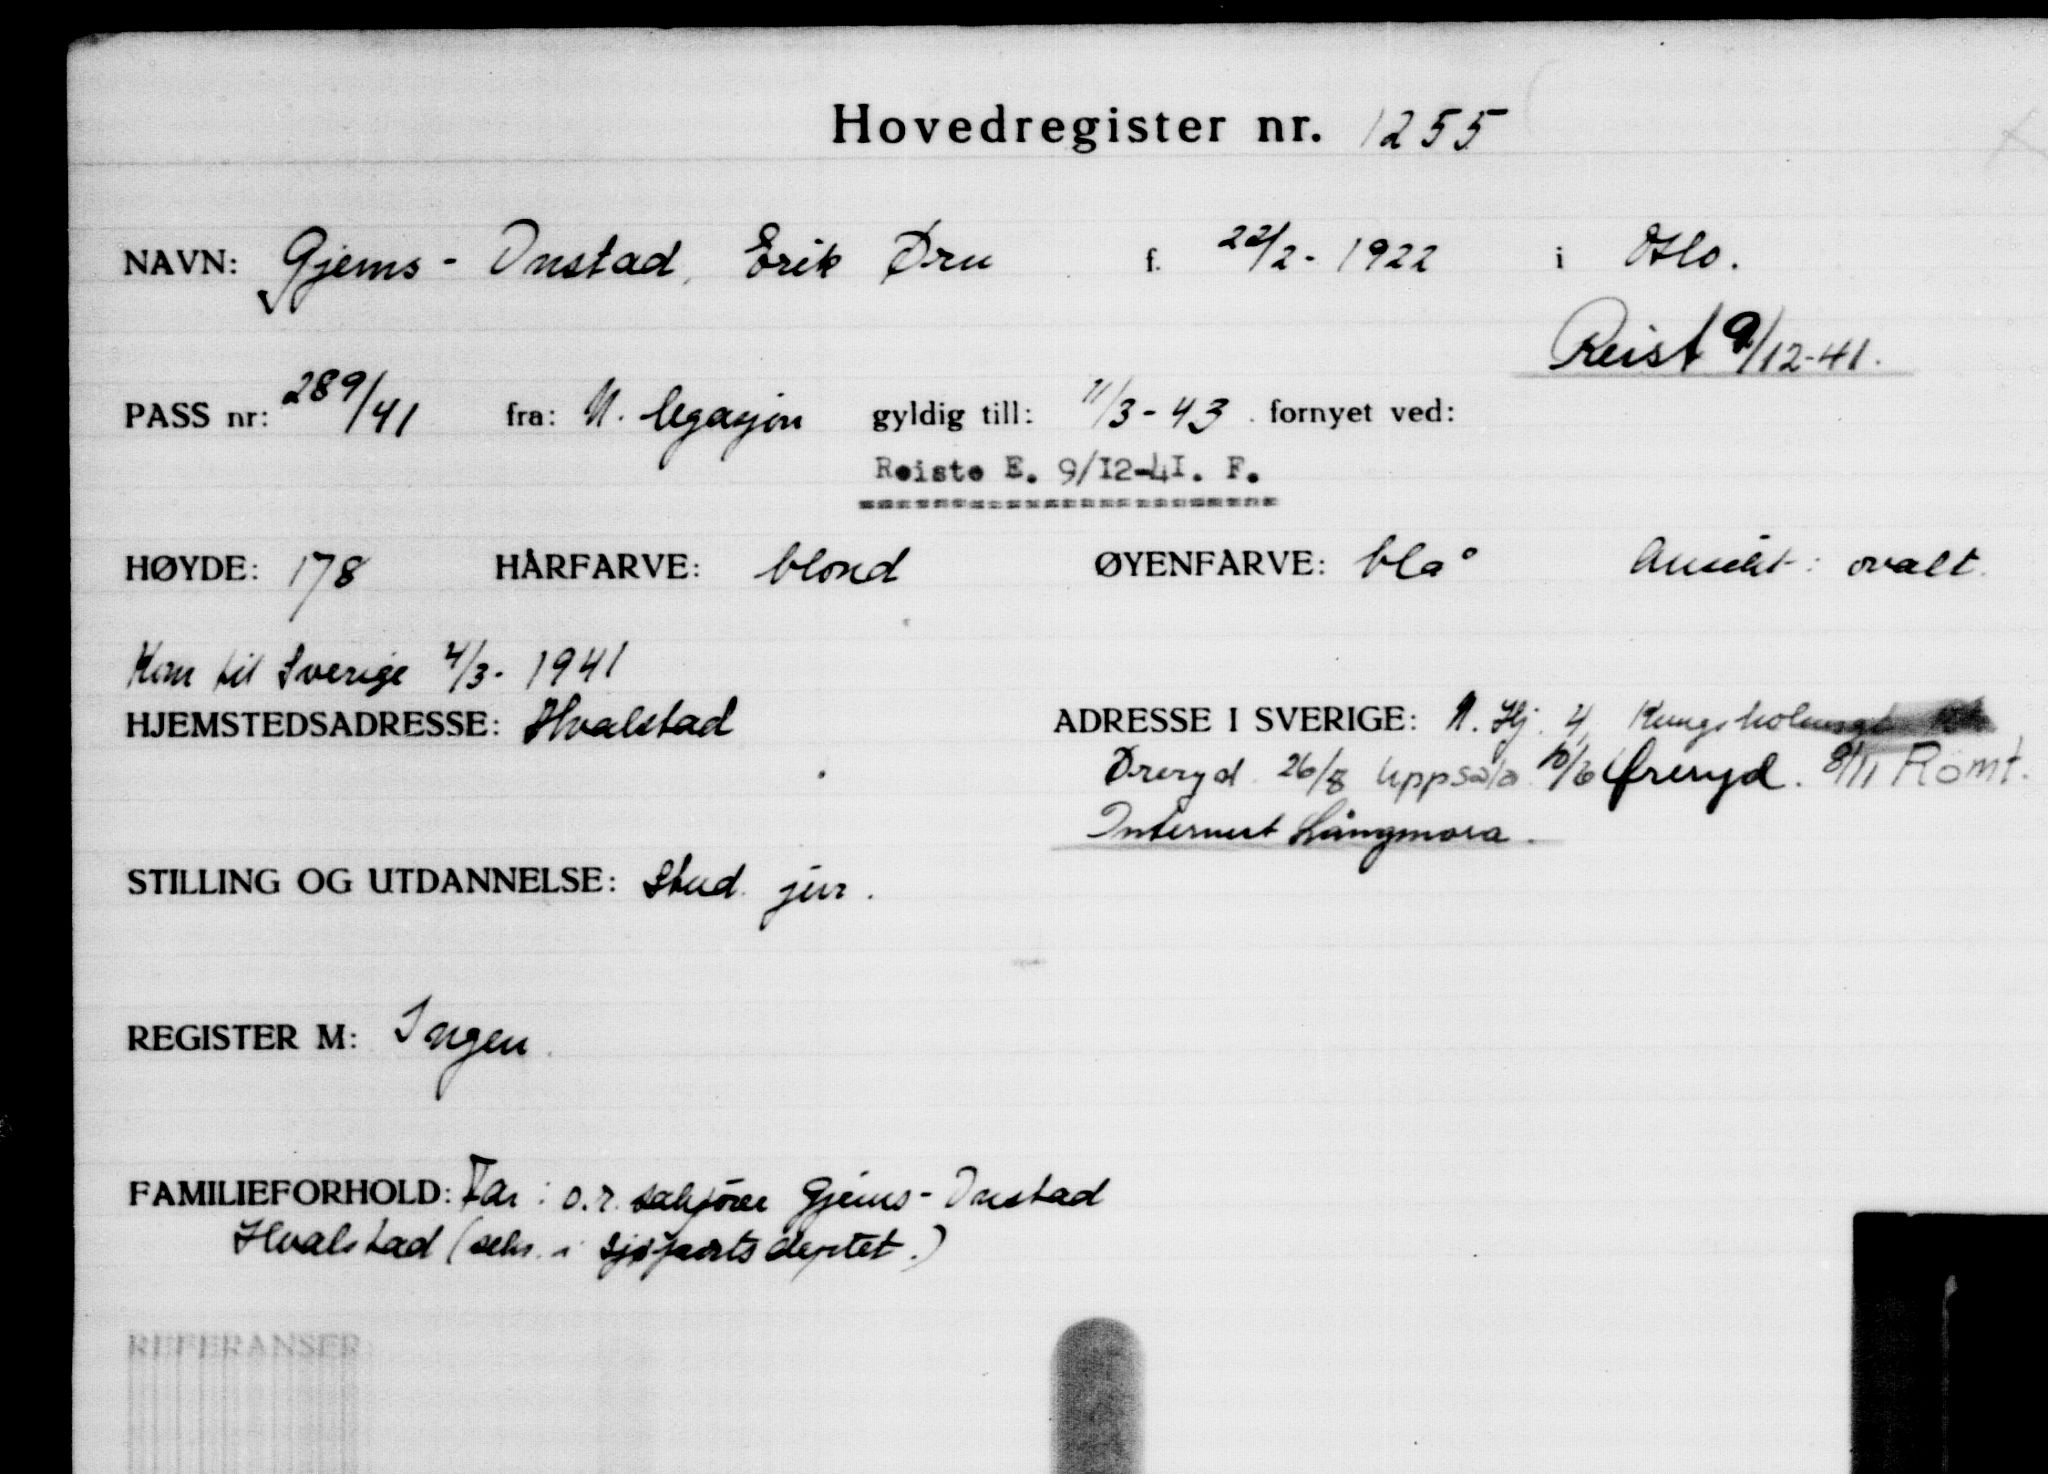 Hovedregister nr. 1255
NAVN: Gjems - Onstad, Erik Ørn f. 22/2 - 1922 i Oslo.
Reist 9/12-41.
PASS nr: 289/41 fra: N. legasjon gyldig till: 11/3 - 43 fornyet ved:
Reiste E. 9/12-41. F.
HØYDE: 178 HÅRFARVE: blond ØYENFARVE: blå Ansikt: ovalt.
Kom til Sverige 4/3 - 1941
HJEMSTEDSADRESSE: Hvalstad ADRESSE I SVERIGE: N. Hj. 4, Kungsholmsgt
Øreryd 26/8 Uppsala 10/6 Øreryd. 8/11 Rømt.
Internert Långmora.
STILLING OG UTDANNELSE: Stud. jur.
REGISTER M: Ingen.
FAMILIEFORHOLD: Far: o.r. sakfører Gjems-Onstad
Hvalstad (sekr. i sjøfartsdeptet.)
REFERANSER